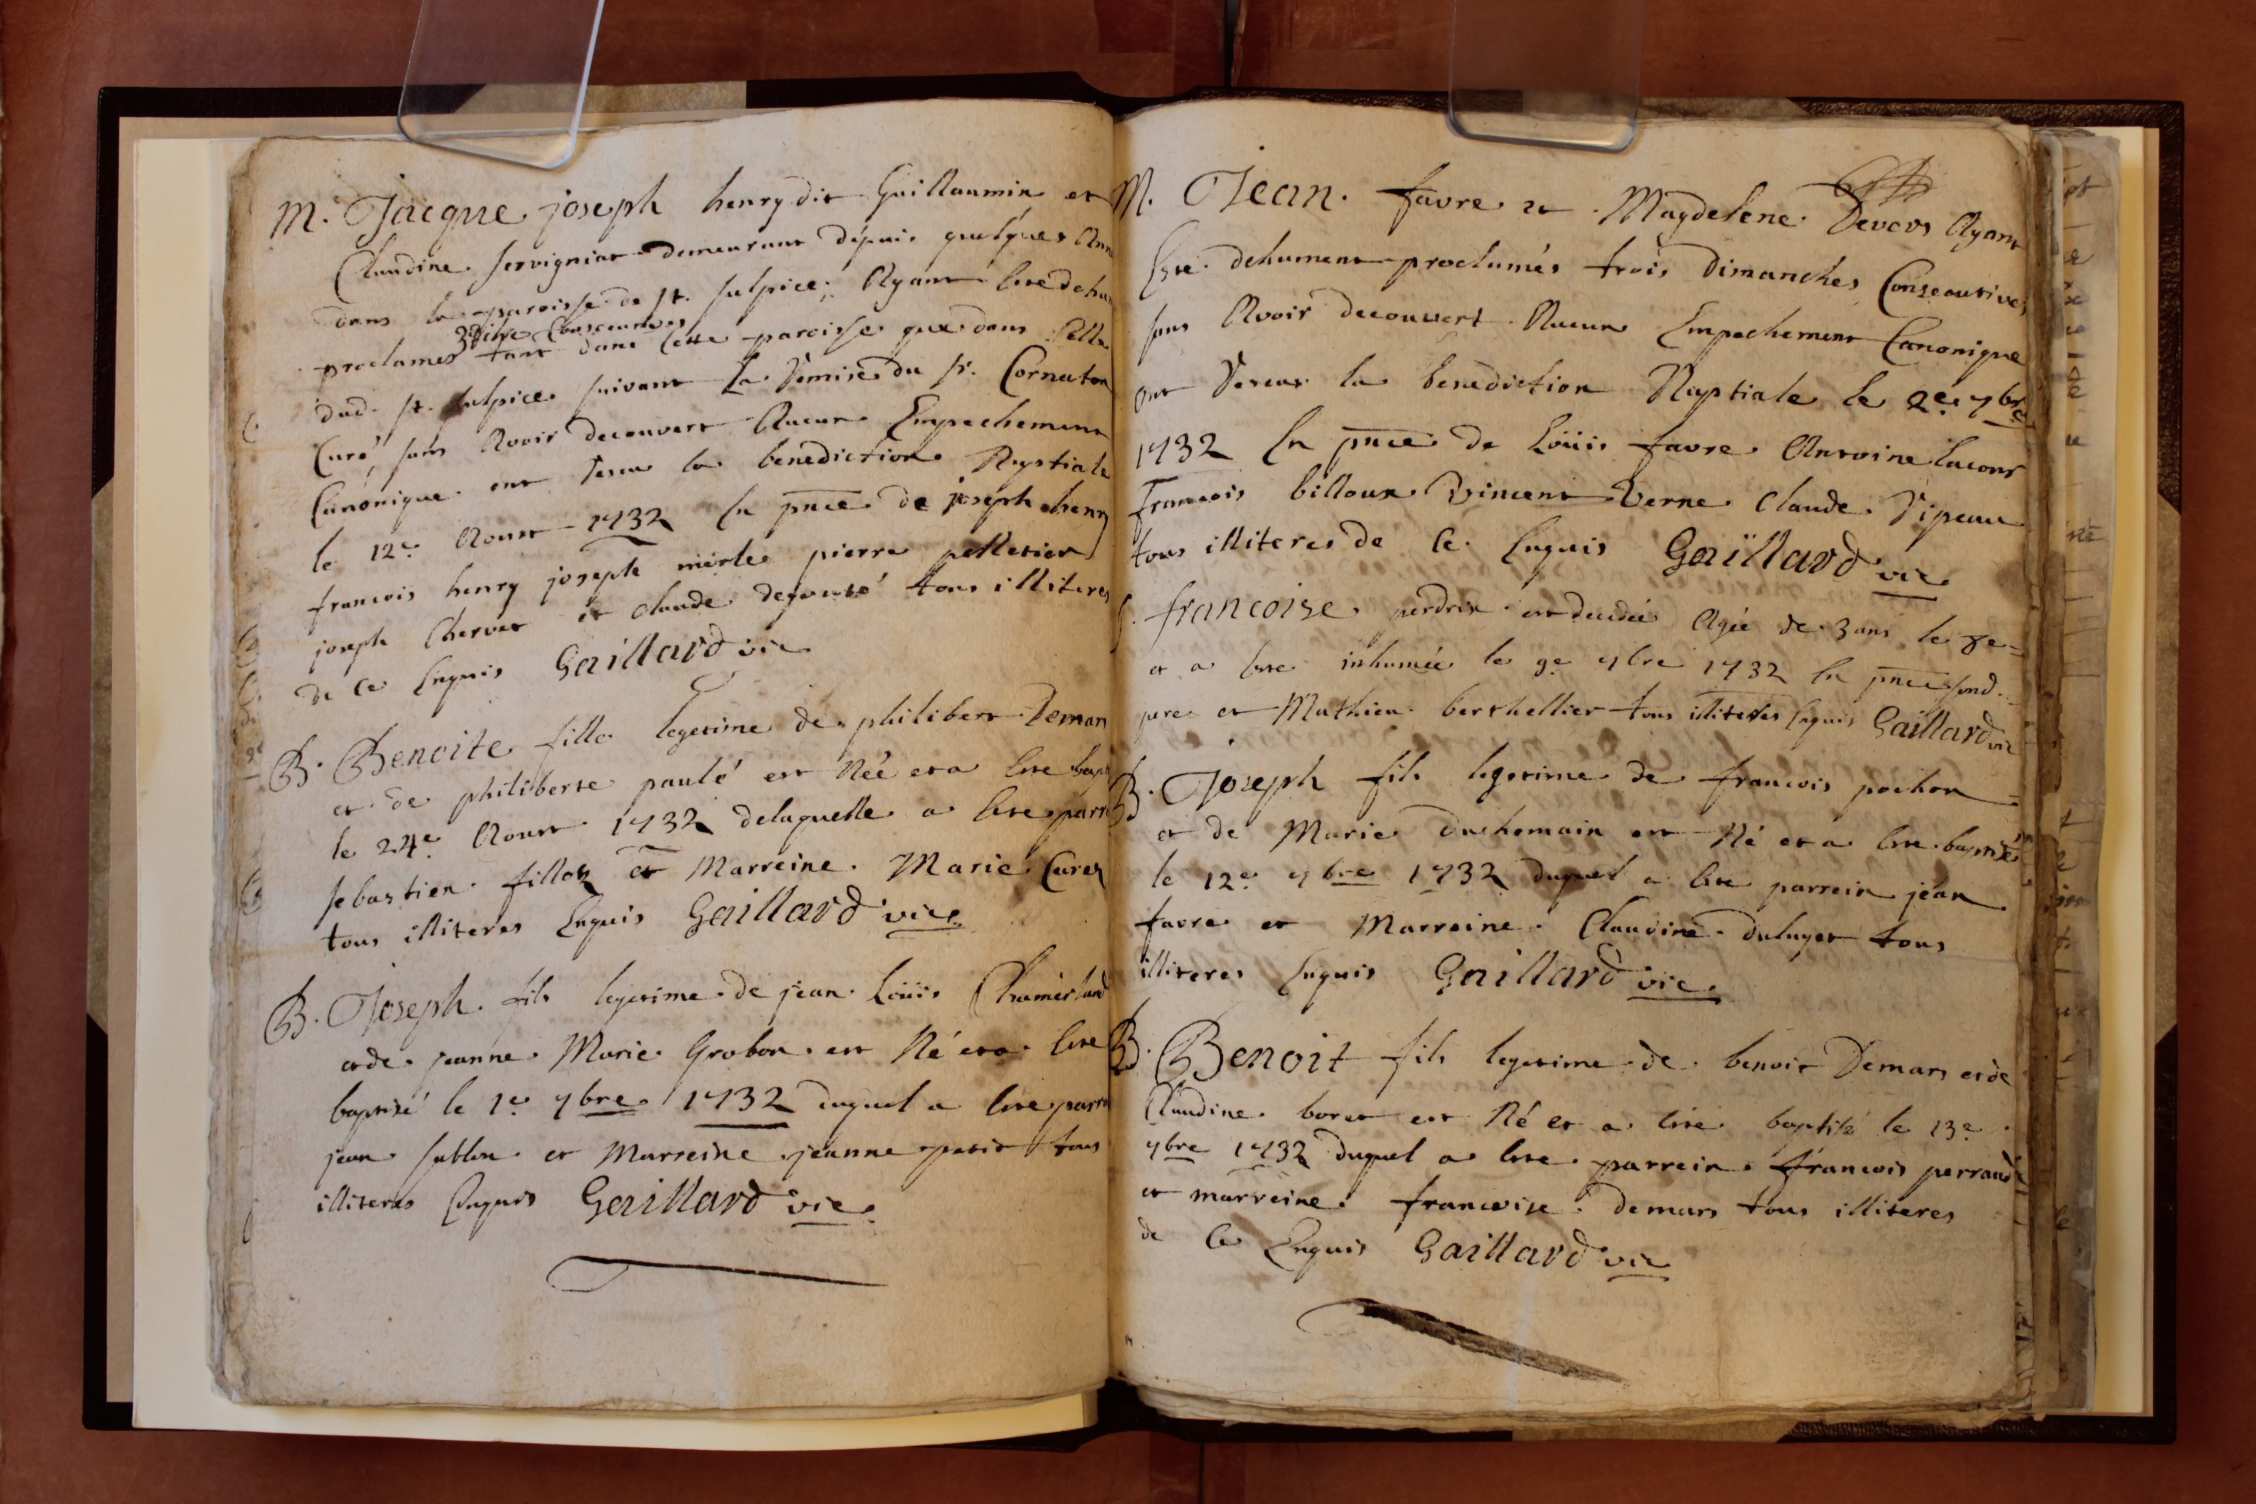 M. Jacque joseph henry dit Guillaumin et
Claudine servigniat demeurant depuis quelques Ann
dans la paroisse de St. sulpice, Ayant été dehu
3 dibe Consecutives
proclames tant dans Cette paroisse que dans Celle
dud. St. sulpice suivant La Remise du Sr. Cornaton
Curé, sans Avoir decouvert Aucun Empechement
Canonique ont Receu la benediction Nuptiale
le 12e. Aoust 1732 En pnce de joseph henry
francois henry joseph merle pierre pelletier
joseph Chervet et claude degouté tous illiteres
de Ce Enquis Gaillard vic
B. Benoite fille legetime de philibert Deman
et de philiberte paulé est Née et a été bapt
le 24e. Aoust 1732 delaquelle a été parr
sebastien fillon et Marreine Marie Curez
tous illiteres Enquis Gaillard vic.
B. Joseph fils legetime de jean Loüis
et de jeanne Marie Grobon est Né et a été
baptisé le 1e 7bre 1732 duquel a été parr
jean sublon et Marreine jeanne petit tous
illiteres Enquis Gaillard vic.
M. Jean favre et Magdelene Devers Ayant
Eté dehument proclamés trois Dimanches Consecutives
sans Avoir decouvert Aucun Empechement Canonique
ont Receus la benediction Nuptiale le 2e. 7bre
1732 En pnce de Loüis favre Antoine lacour
francois billoux Vincent Verne Claude Ripeau
tous illiteres de Ce Enquis Gaillard vic
francoise perdrix est decedée Agée de 3 ans le 8e
et a été inhumée le 9e 7bre 1732 En pnce sond.
pere et Mathieu berthellier tous illiteres Enquis Gaillard vic
B. Joseph fils legetime de francois pochon
et de Marie Duchemain est Né et a été baptisé
le 12e 7bre 1732 duquel a été parrein jean
favre et Marreine Claudine duluyet tous
illiteres Enquis Gaillard vic.
B. Benoit fils legetime de benoit Demars et de
Claudine boret est Né et a été baptisé le 13e
7bre 1732 Duquel a été parrein francois perraud
et marreine francoise demars tous illiteres
de Ce Enquis Gaillard vic